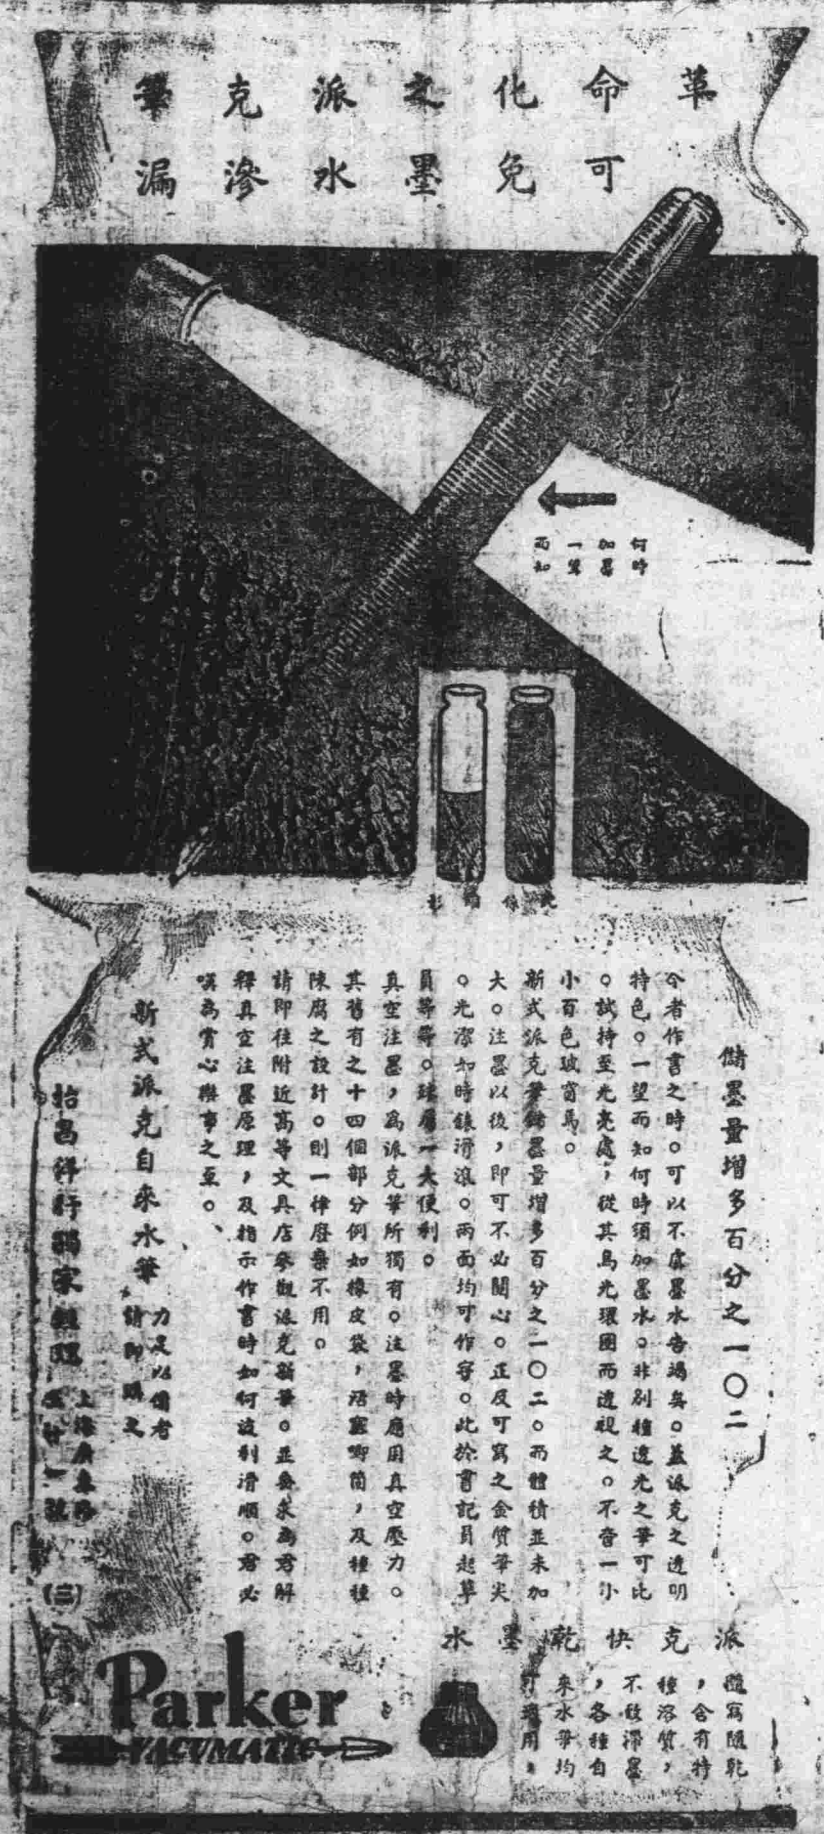 革命化之派克筆
可免墨水滲漏
何時
加墨
一望
而知
儲墨量增多百分之一〇二
今者作書之時。可以不虞墨水告竭矣。蓋派克之透明
特色。一望而知何時須加墨水。非別種透光之筆可比
。試持至光亮處，從其烏光環圈而透視之。不啻一小
小百色玻窗焉。
新式派克筆儲墨量增多百分之一〇二。而體積並未加
大。注墨以後，即可不必關心。正反可寫之金質筆尖
。光潔如時錶滑滾。兩面均可作字。此於書記員起草
員等等。一大便利。
真空注墨，為派克筆所獨有。注墨時應用真空壓力。
其舊有之十四個部分例如橡皮袋，活塞唧筒，及種種
陳腐之設計。則一律廢棄不用。
請即往附近高等文具店參觀派克新筆。並要求為君解
釋真空注墨原理，及指示作書時如何流利滑順。君必
嘆為賞心樂事之至。
新式派克自來水筆
力足以備者
請即購之
怡昌洋行獨家經理
上海廣東路
號
(三)
派克快乾墨水
隨寫隨乾
，含有特
種溶質，
不致滯墨
，各種自
來水筆均
可適用。
Parker
VACUMATIC